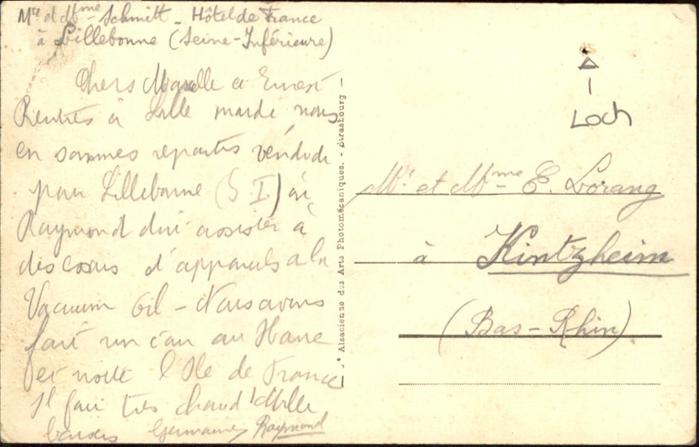 Mr et Mme Schmitt - Hôtel de France
à Lillebonne (Seine-Inférieure)
Chers Marcelle et Ernest
Rentrés à Lille mardi nous
en sommes repartis vendredi
pour Lillebonne (S I) où
Raymond doit assister à
des cours d'appareils à la
Vacuum Oil - Nous avons
fait un saut au Havre
et visité l'Ile de France
Il fait très chaud Mille
baisers Germaine Raymond
Alsacienne des Arts Photomécaniques. - Strasbourg -
Loch
Mr et Mme E. Lorang
à Kintzheim
(Bas-Rhin)